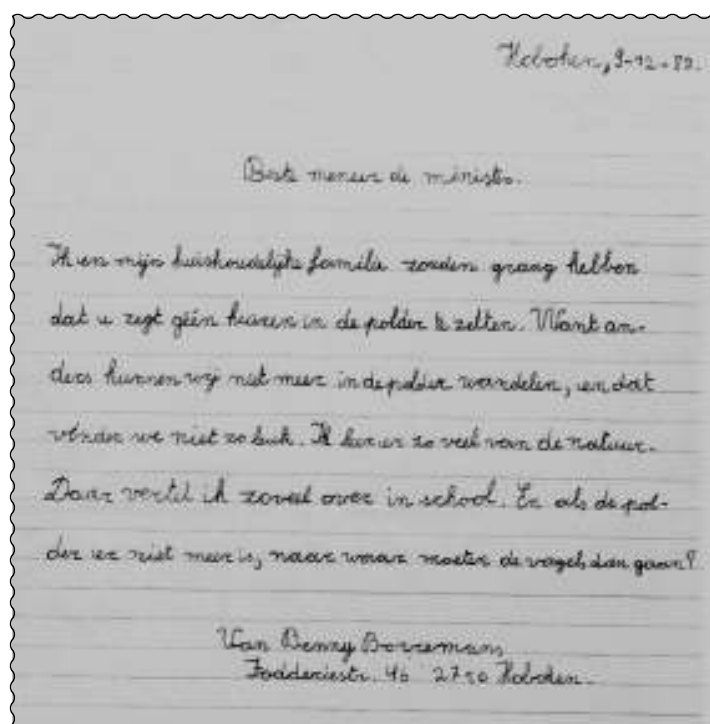 Hoboken, 9-12-89.
Beste meneer de minister.
Ik en mijn huishoudelijke familie zouden graag hebben
dat u zegt géén huizen in de polder te zetten. Want an-
ders kunnen wij niet meer in de polder wandelen, en dat
vinden we niet zo leuk. Ik leer er zo veel van de natuur.
Daar vertel ik zoveel over in school. En als de pol-
der er niet meer is, naar waar moeten de vogels dan gaan?
Van Benny Borremans
46 2710 Hoboken.